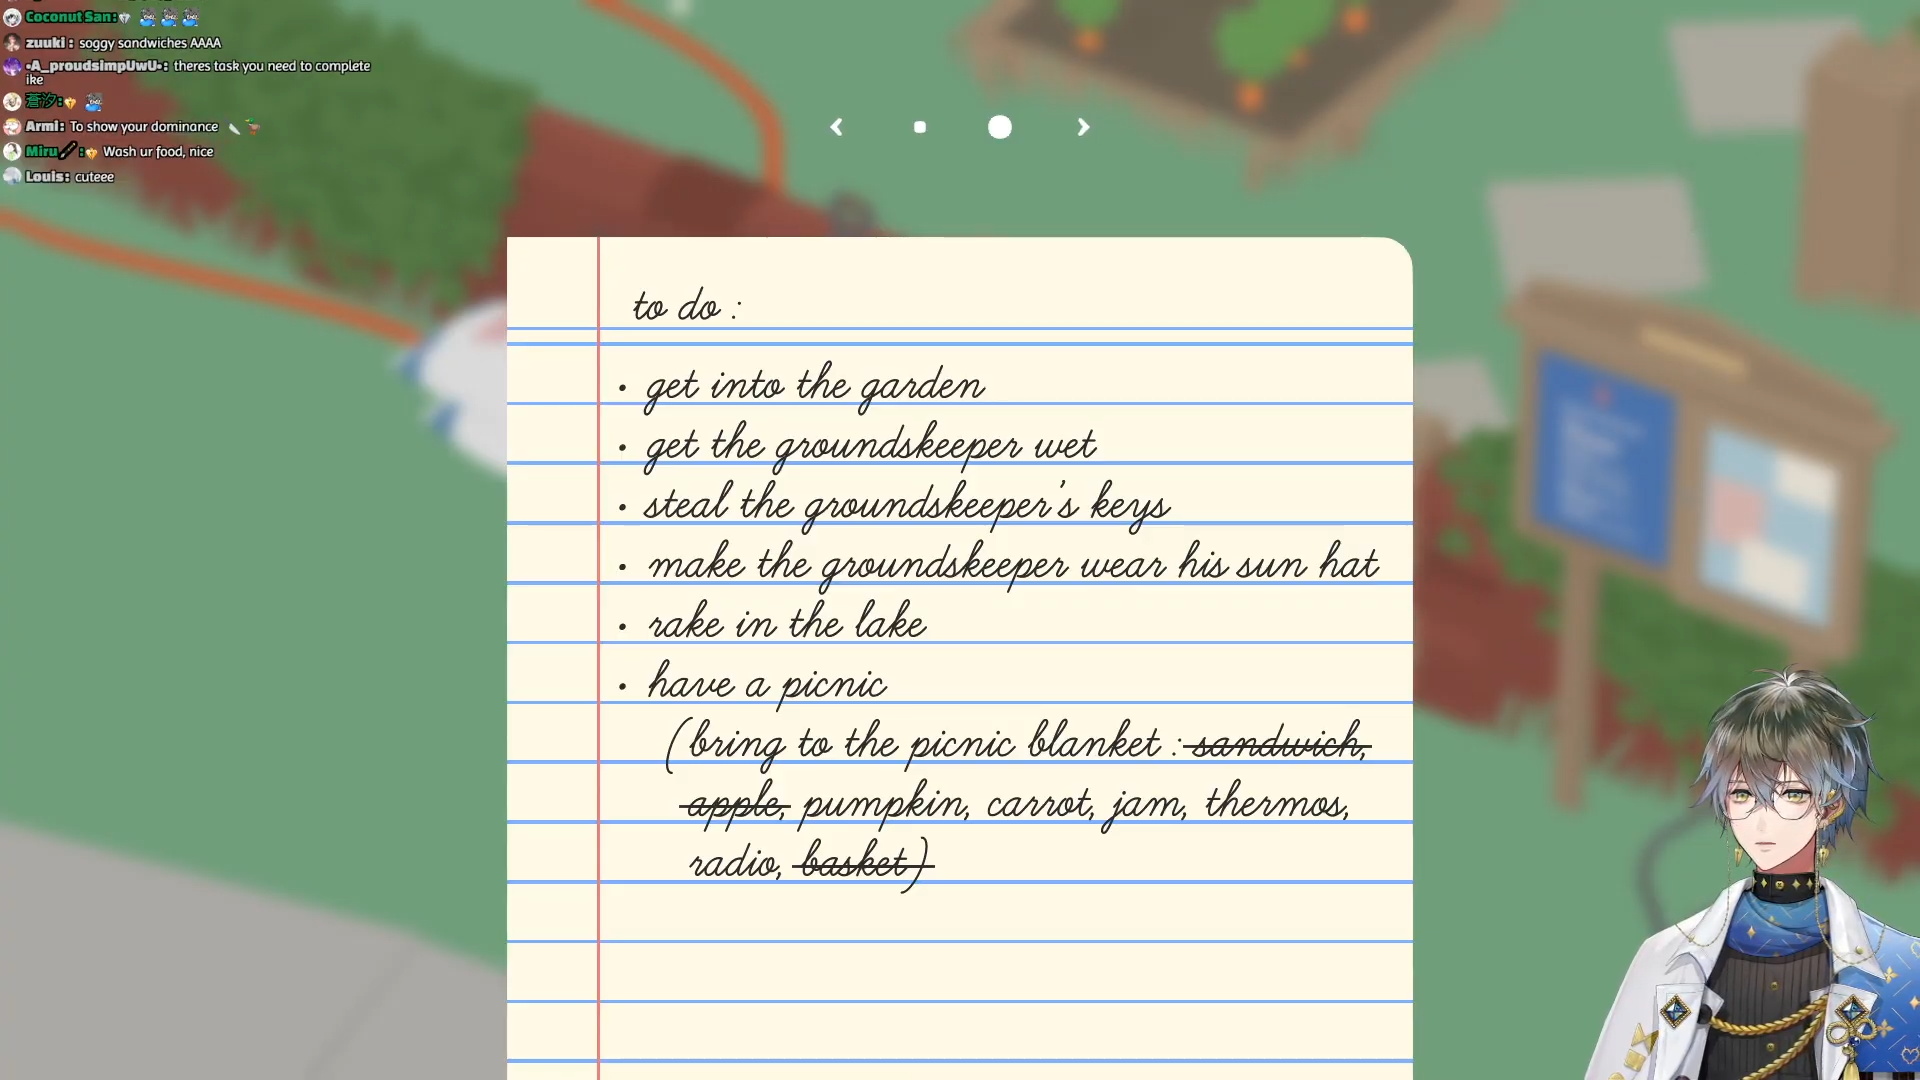 Coconut San:
zuuki : soggy sandwiches AAAA
•A_proudsimpUwU•: theres task you need to complete
ike
蒼汐:
Armi: To show your dominance
Miru: Wash ur food, nice
Louis: cuteee
to do :
• get into the garden
• get the groundskeeper wet
• steal the groundskeeper's keys
• make the groundskeeper wear his sun hat
• rake in the lake
• have a picnic
(bring to the picnic blanket : sandwich,
apple, pumpkin, carrot, jam, thermos,
radio, basket)